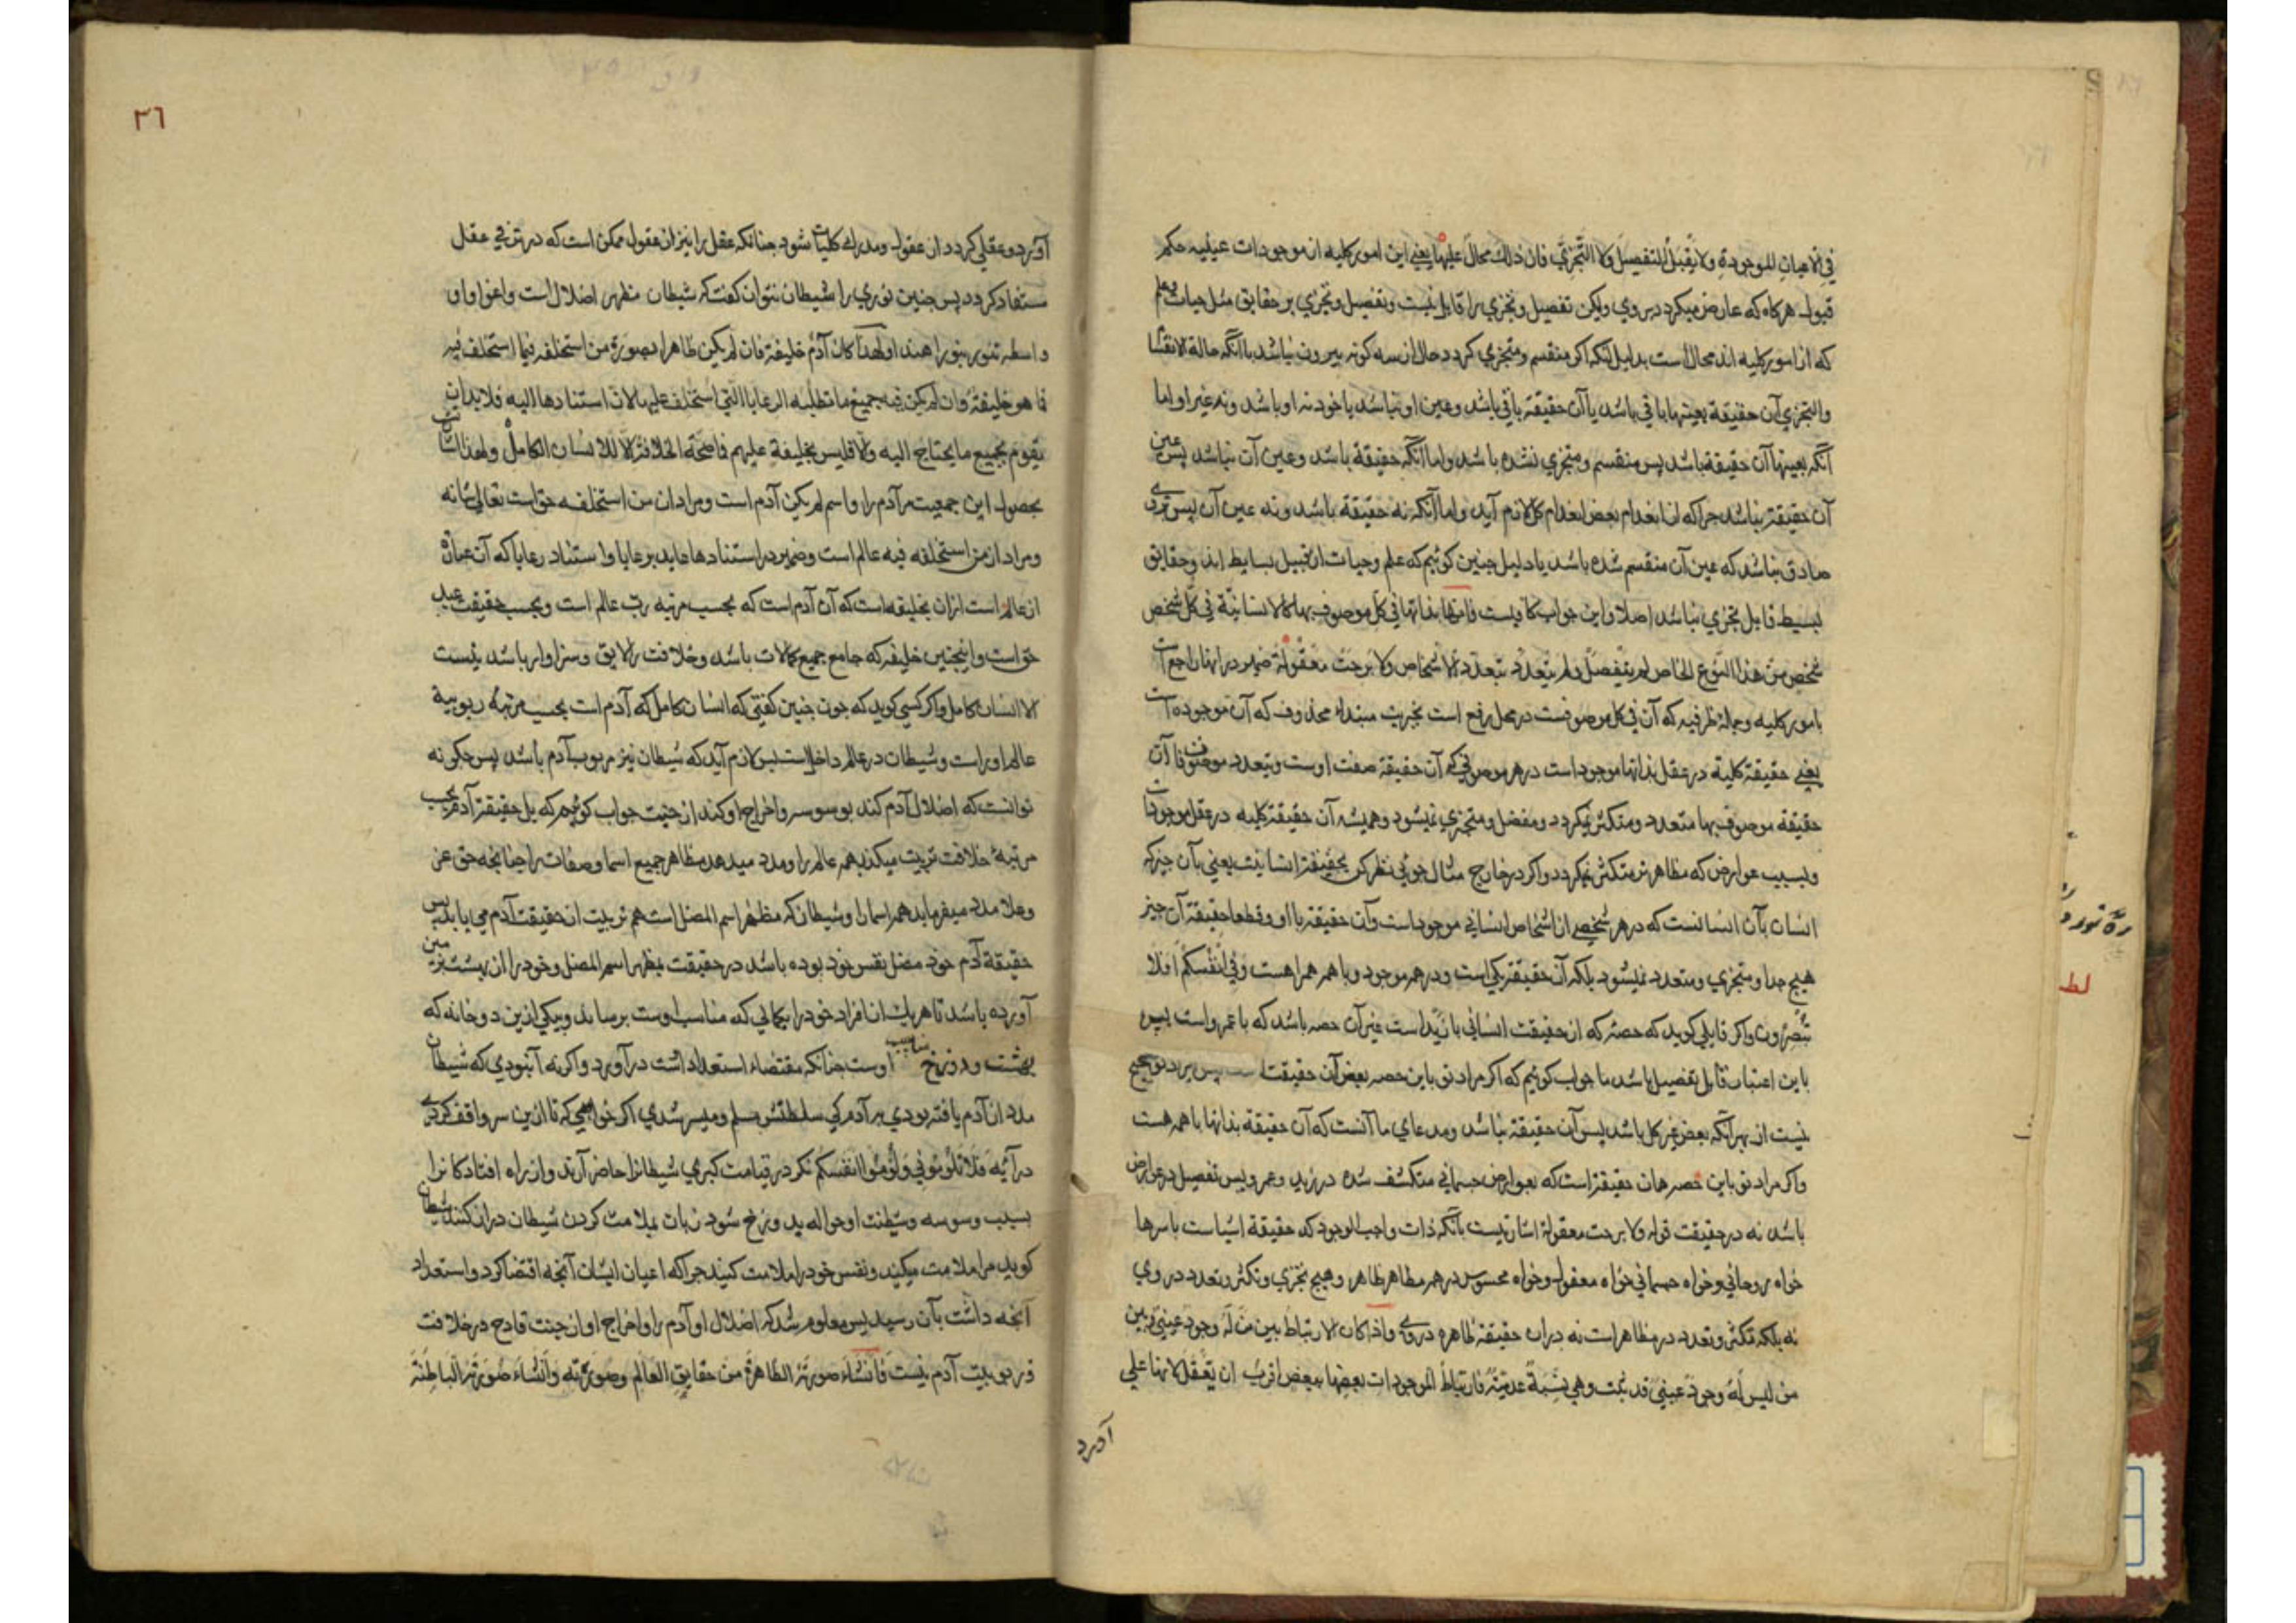 في الاعیان الموجودة ولا یقبل التفصیل ولا التجزي فان ذلك محال علیها یعنی این امور کلیه از موجودات عینیه حکم
قبول هرکاه که عارض میکردد بروی ولیکن تفصیل و تجزي را قابل نیست و تفصیل و تجزي بر حقایق مثل حیات و علم
که از امور کلیه اند محال است بدلیل آنکه اکر منقسم و متجزي کردد حال از سه کونه بیرون نباشد یا آنکه حالة الانقسام
والتجزي آن حقیقة بعینها باقی باشد یا آن حقیقة باقی باشد و عین او نباشد یا خود نه او باشد و نه غیر او اما
آنکه بعینها آن حقیقة باشد پس منقسم و متجزي نشده باشد و اما آنکه حقیقة باشد و عین آن نباشد پس عین
آن حقیقة نباشد جراکه از انعدام بعض انعدام کل لازم آید و اما آنکه نه حقیقة باشد و نه عین آن پس
صادق نباشد که عین آن منقسم شده باشد یا دلیل جنین کوئیم که علم و حیات از قبیل بسایط اند و حقایق
بسیط قابل تجزي نباشد اصلا و این جواب کافیست فانها بذاتها في کل موصوف بها کالانسانیة في کل شخص
شخص من هذا النوع الخاص لم یتفصل ولم یتعدد بتعدد الاشخاص ولا برحت معقولة ضمیر در انها راجع است
بامور کلیه و جملة ظرفیه که آن في کل موصوفست در محل رفع است بخبریت مبتداء محذوف که آن موجوده است
یعنی حقیقة کلیة در عقل بذاتها موجود است در هر موصوفی که آن حقیقة صفت اوست و بتعدد موصوفات آن
حقیقة موصوف بها متعدد و متکثر نمیکردد و مفصل و متجزي نمیشود و همیشه آن حقیقة کلیه در عقل موجود است
و بسبب عوارض که مظاهرند متکثر نمیکردد و اکر در خارج مثال جوئی نظر کن بحقیقة انسانیت یعنی بآن جیزکه
انسان بآن انسانست که در هر شخصی از اشخاص انسانی موجود است و آن حقیقة با او و قطعا حقیقة آن جیز
هیج جدا و متجزي و متعدد نمیشود بلکه آن حقیقة یکی است و در همه موجود و با همه همراهست وفي انفسکم افلا
تبصرون و اکر قایلی کوید که حصه که از حقیقت انسانی با زید است غیر آن حصه باشد که با عمرو است پس
باین اعتبار قابل تفصیل باشد ما جواب کوئیم که اکر مراد تو باین حصه بعض آن حقیقت است پس مراد تو صحیح
نیست از بهر آنکه بعض غیر کل باشد پس آن حقیقة نباشد و مدعاي ما آنست که آن حقیقة بذاتها با همه هست
واکر مراد تو باین حصه همان حقیقة است که بعوارض جسمانی متکشف شده در زید و عمرو پس تفصیل در عوارض
باشد نه در حقیقت قوله ولا برحت معقولة اشارتیست بآنکه ذات واجب الوجود که حقیقة اشیاست باسرها
خواه روحانی و خواه جسمانی خواه معقول و خواه محسوس در همه مظاهر ظاهر و هیج تجزي و تکثر و تعدد در وي
نه بلکه تکثر و تعدد در مظاهر است نه در آن حقیقة ظاهره در وی واذا کان الارتباط بین من له وجود عیني وبین
من لیس له وجود عیني قد ثبت وهي نسبة عدمیة فارتباط الموجودات بعضها ببعض اقرب ان یعقل لانها علی
آورد
رة
لط
٣٦
آورد و عقلی کردد از عقول و مدرك کلیات شود جنانکه عقل را نیز از عقول ممکن است که در ترقی عقل
مستفاد کردد پس جنین نوري را شیطان نتوان کفت که شیطان مظهر اضلال است و اغوا و او
واسطه تنویر بنور اهتداء ولهذا کان آدم خلیفة فان لم یکن ظاهرا بصورة من استخلفه فیما استخلف فیه
فما هو خلیفة وان لم یکن فیه جمیع ما تطلبه الرعایا التي استخلف علیها لان استنادها الیه فلا بد ان
یقوم بجمیع ما یحتاج الیه والا فلیس بخلیفة علیهم فما صحت الخلافة الا للانسان الکامل ولهذا
بحصول این جمعیت مر آدم را و اسم لم یکن آدم است و مراد از من استخلفه حق است تعالی شانه
ومراد از من استخلفه فیه عالم است و ضمیر در استنادها عاید برعایا و استناد رعایا که آن عبارت
از عالم است از آن بخلیفه است که آن آدم است که بحسب مرتبه رب عالم است و بحسب حقیقت عبد
حق است و اینجنین خلیفه که جامع جمیع کمالات باشد و خلافت را لایق و سزاوار باشد نیست
الا انسان کامل و اکر کسی کوید که جون جنین کفتی که انسان کامل که آدم است بحسب مرتبه ربوبیة
عالم او راست و شیطان در عالم داخل است پس لازم آید که شیطان نیز مربوب آدم باشد پس جکونه
توانست که اضلال آدم کند بوسوسه و اخراج او کند از جنت جواب کوئیم که بل حقیقة آدم بحسب
مرتبۀ خلافت تربیت میکند همه عالم را و مدد میدهد مظاهر جمیع اسما و صفات را جنانجه حق عز
وعلا مدد میفرماید همه اسما را و شیطان که مظهر اسم المضل است هم تربیت از حقیقت آدم می یابد پس
حقیقة آدم خود مضل نفس خود بوده باشد در حقیقت بمظهر اسم المضل و خود را از بهشت بزمین
آورده باشد تا هریك از افراد خود را بکمالی که مناسب اوست برساند و بیکی ازین دو خانه که
بهشت و دوزخ مناسب اوست جنانکه مقتضاء استعداد اشت درآورد و اکرنه آنبودي که شیطان
مدد از آدم یافته بودي بر آدم کی سلطنتش مسلم و میسر شدي اکر خواهی که تا ازین سر واقف کردی
در آیه فلا تلوموني ولوموا انفسکم نکر در قیامت کبری شیطانرا حاضر آرند و از راه افتادکانرا
بسبب وسوسه و شیطنت او حواله بدوزخ شود زبان بملامت کردن شیطان دراز کنند شیطان
کوید مرا ملامت میکنید و نفس خود را ملامت کنید جراکه اعیان ایشان آنجه اقتضا کرد و استعداد
آنجه داشت بآن رسید پس معلوم شد که اضلال او آدم را و اخراج او از جنت قادح در خلافت
و ربوبیت آدم نیست فانشاء صورته الظاهرة من حقایق العالم وصوره وانشاء صورته الباطنة